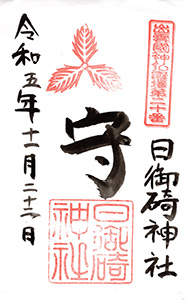 出雲國神仏霊場第二十番
日御碕神社
守
日御碕
神社
令和五年十一月二十三日